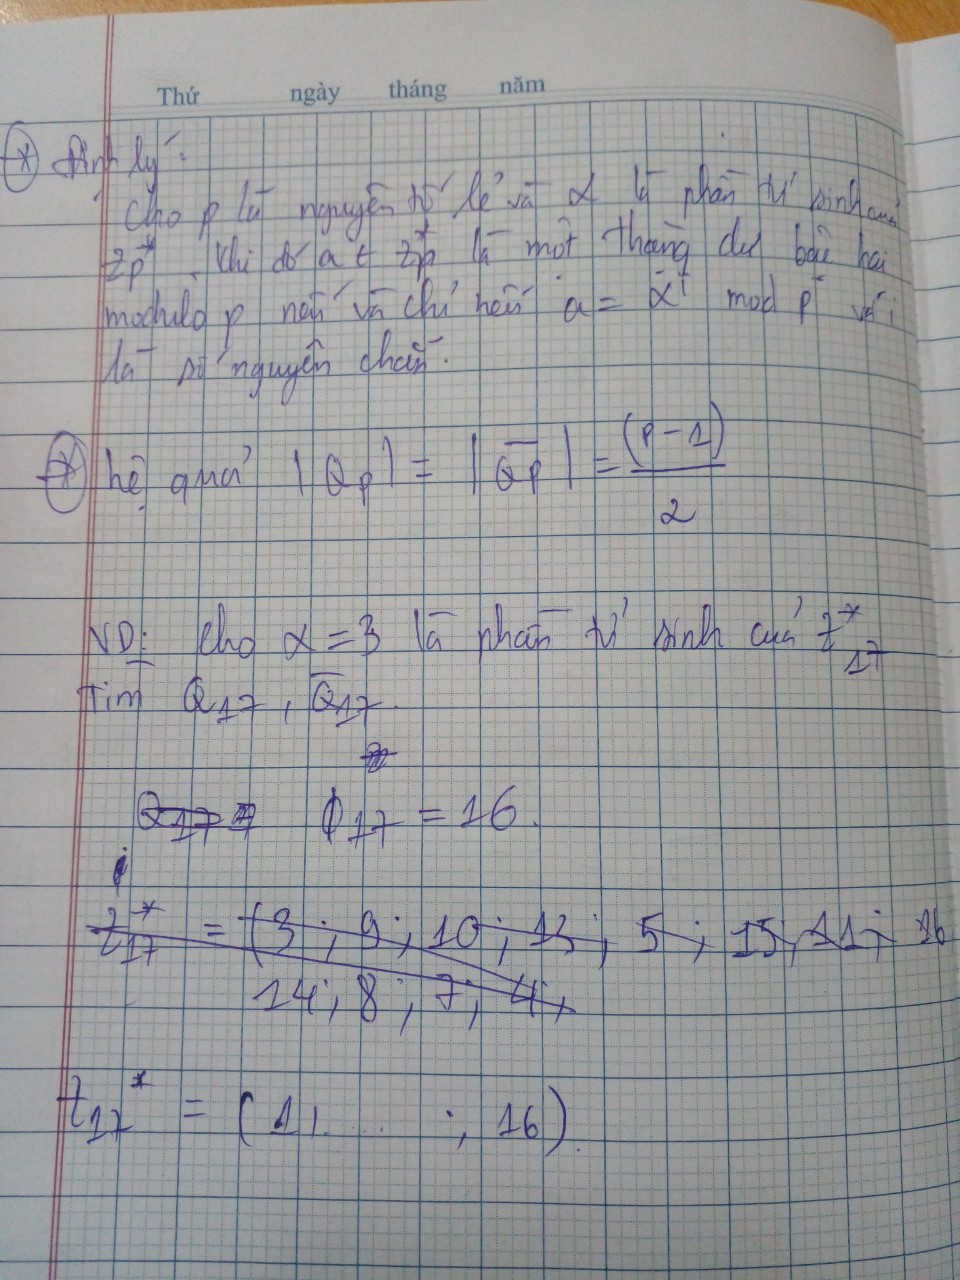 Thứ ngày tháng năm
* Định lý:
Cho p là nguyên tố lẻ và α là phần tử sinh của
Zp*. Khi đó a ∈ Zp* là một thặng dư bậc hai
modulo p nếu và chỉ nếu a = α^i mod p với i
là số nguyên chẵn.
* hệ quả |Qp| = |Q̅p| = (p-1)/2
VD: Cho α = 3 là phần tử sinh của Z*17
Tìm Q17, Q̅17.
Q17 = ϕ17 = 16.
Z*17 = (3; 9; 10; 13; 5; 15; 11; 16
14; 8; 7; 4;
Z17* = (1, ....; 16).